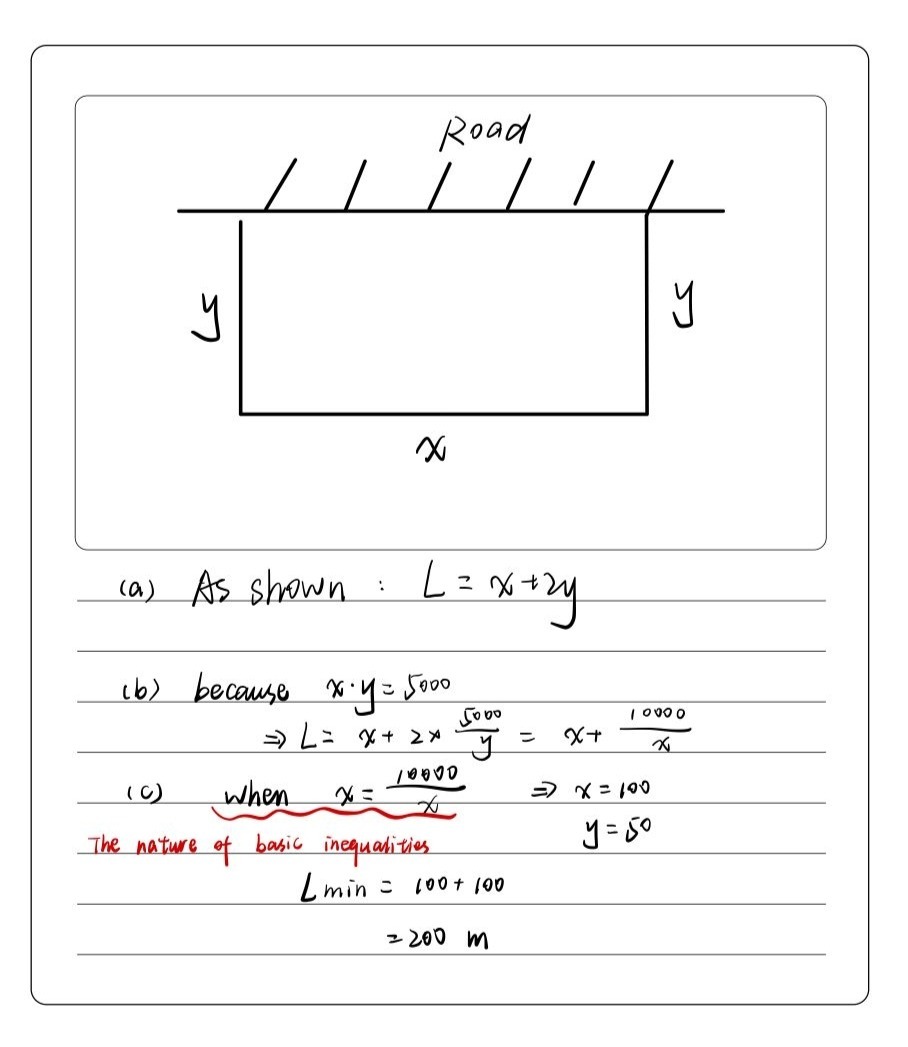 Road
y
y
x
(a) As shown : L = x+2y
(b) because x·y = 5000
⇒ L = x + 2× 5000/y = x + 10000/x
(c) when x = 10000/x ⇒ x = 100
y = 50
The nature of basic inequalities
Lmin = 100 + 100
= 200 m